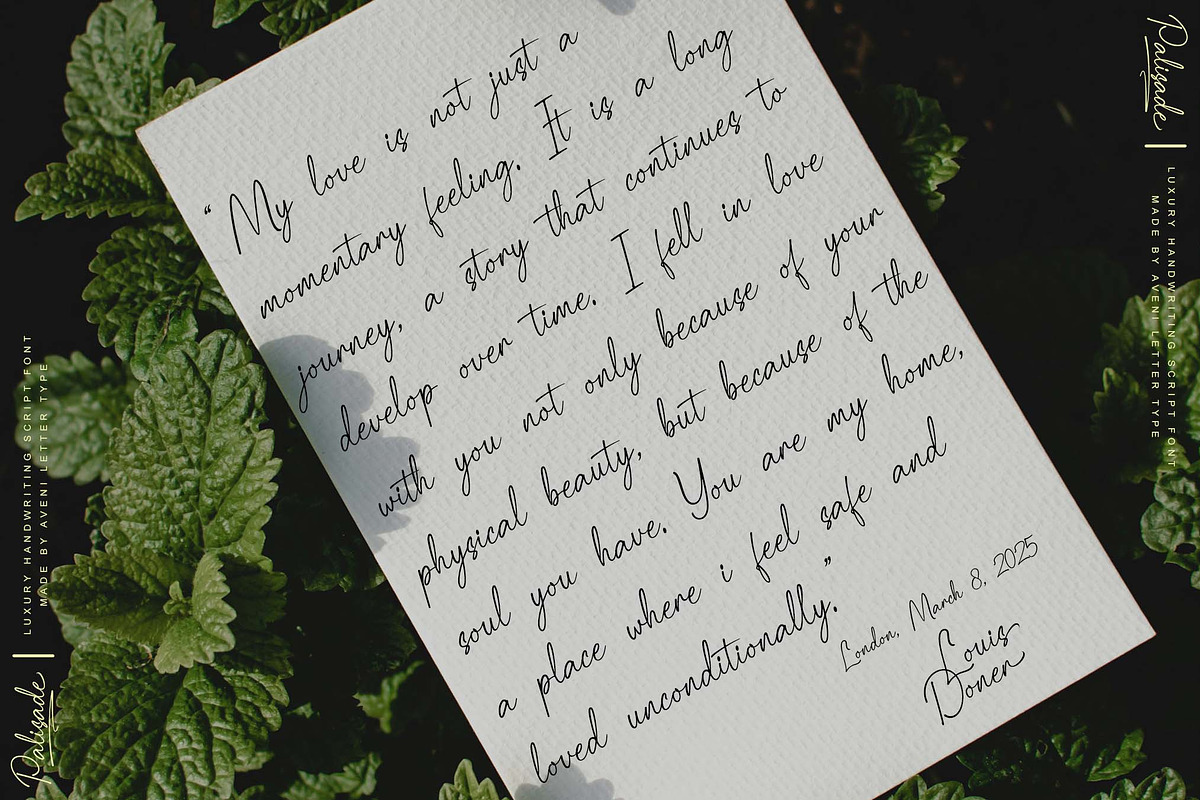 “My love is not just a
momentary feeling. It is a long
journey, a story that continues to
develop over time. I fell in love
with you not only because of your
physical beauty, but because of the
soul you have. You are my home,
a place where i feel safe and
loved unconditionally.”
London, March 8, 2025
Louis
Doner
Palisade
LUXURY HANDWRITING SCRIPT FONT
MADE BY AVENI LETTER TYPE
Palisade
LUXURY HANDWRITING SCRIPT FONT
MADE BY AVENI LETTER TYPE